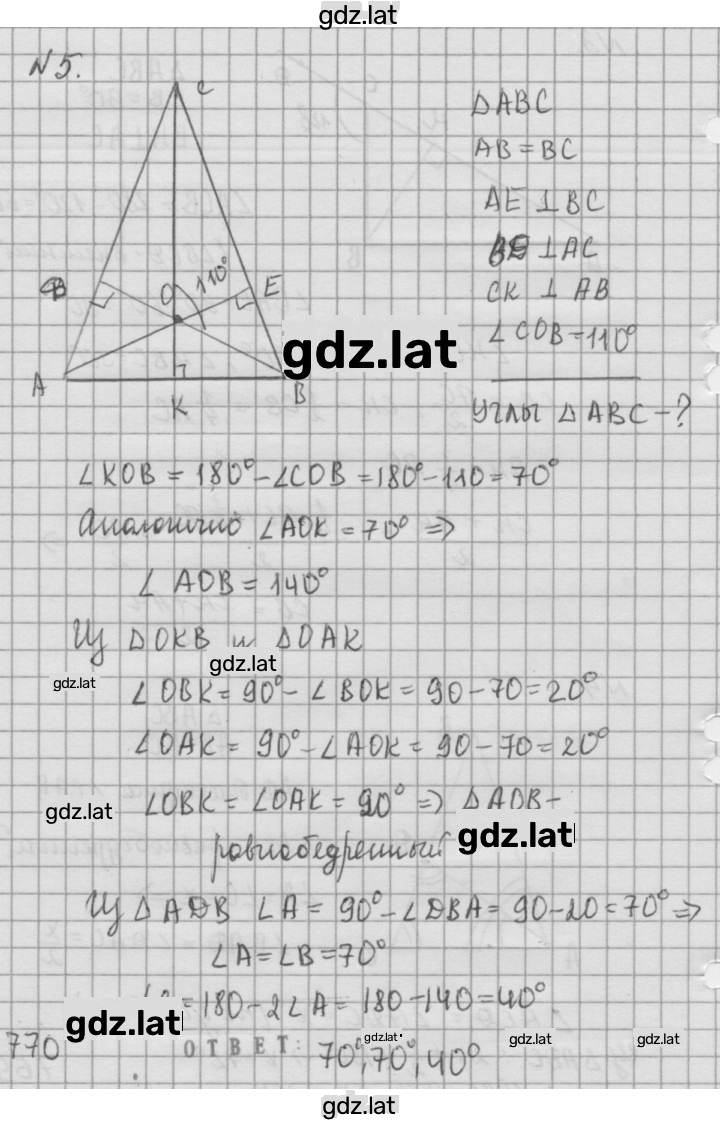 gdz.lat
N5.
C
ΔABC
AB = BC
AE ⊥ BC
⊥ AC
CK ⊥ AB
∠COB = 110°
O 110° E
gdz.lat
A K B
Углы ΔABC - ?
∠KOB = 180° - ∠COB = 180° - 110 = 70°
Аналогично ∠AOK = 70° ⇒
∠AOB = 140°
Из ΔOKB и ΔOAK
gdz.lat
gdz.lat
∠OBK = 90° - ∠BOK = 90 - 70 = 20°
∠OAK = 90° - ∠AOK = 90 - 70 = 20°
gdz.lat
∠OBK = ∠OAK = 20° ⇒ ΔAOB -
равнобедренный
gdz.lat
Из ΔADB ∠A = 90° - ∠DBA = 90 - 20 = 70° ⇒
∠A = ∠B = 70°
= 180 - 2∠A = 180 - 140 = 40°
gdz.lat
770 ОТВЕТ: 70°, 70°, 40°
gdz.lat
gdz.lat
gdz.lat
gdz.lat